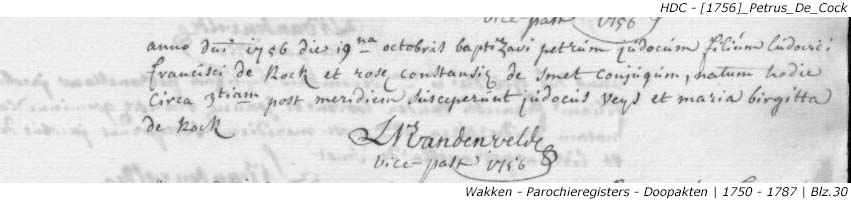 HDC - [1756]_Petrus_De_Cock
vice past 1756
anno dni 1756 die 19na octobris baptizavi petrum judocum filium ludovici
francisci de Kock et rosæ constansiæ de smet conjugum, natum hodie
circa 3tiam post meridiem susceperunt judocus veys et maria birgitta
de Kock
Vandenvelde
vice past 1756
Wakken - Parochieregisters - Doopakten | 1750 - 1787 | Blz.30